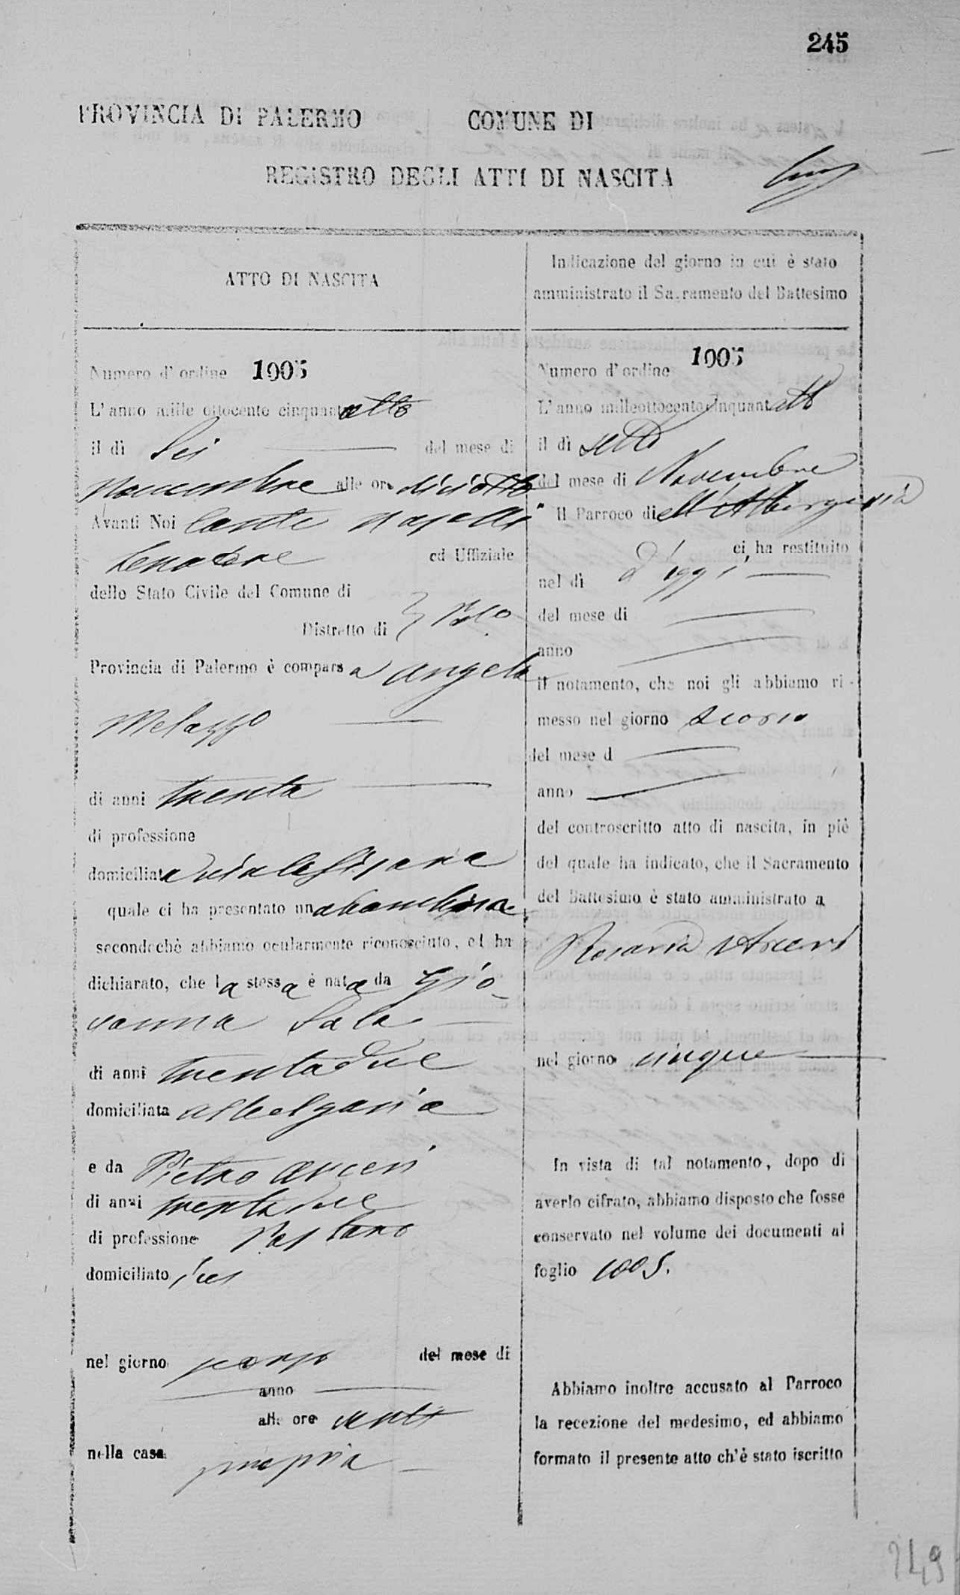 245
PROVINCIA DI PALERMO COMUNE DI
REGISTRO DEGLI ATTI DI NASCITA
ATTO DI NASCITA
Numero d'ordine 1005
L'anno mille ottocento cinquantotto
il dì Sei del mese di
Novembre alle ore diciotto
Avanti Noi Conte Naselli
ed Uffiziale
dello Stato Civile del Comune di
Distretto di Pal.o
Provincia di Palermo è comparsa Angela
Melazzo
di anni trenta
di professione
domiciliata
quale ci ha presentato una bambina
secondochè abbiamo ocularmente riconosciuto, ed ha
dichiarato, che la stessa è nata da Gio-
vanna Sala
di anni trentadue
domiciliata Albergaria
e da Pietro Arceri
di anni trentadue
di professione Pastaro
domiciliato ivi
nel giorno scorso del mese di
anno
alle ore venti
nella casa propria
Indicazione del giorno in cui è stato
amministrato il Sacramento del Battesimo
Numero d'ordine 1005
L'anno milleottocentocinquantotto
il dì sette
del mese di Novembre
Il Parroco di Albergaria
ci ha restituito
nel dì d'oggi
del mese di
anno
il notamento, che noi gli abbiamo ri-
messo nel giorno scorso
del mese d
anno
del controscritto atto di nascita, in piè
del quale ha indicato, che il Sacramento
del Battesimo è stato amministrato a
Rosaria Arceri
nel giorno cinque
In vista di tal notamento, dopo di
averlo cifrato, abbiamo disposto che fosse
conservato nel volume dei documenti al
foglio 1005.
Abbiamo inoltre accusato al Parroco
la recezione del medesimo, ed abbiamo
formato il presente atto ch'è stato iscritto
249